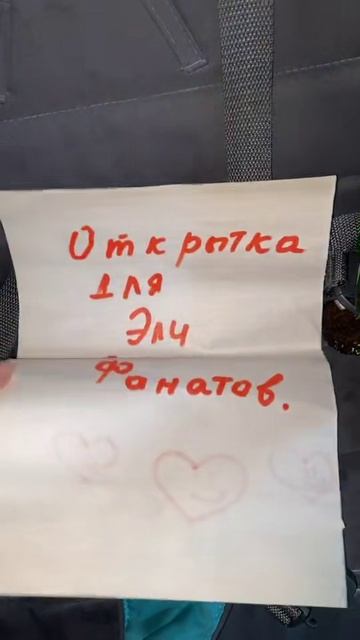 Открытка
для
Эли
Фанатов.